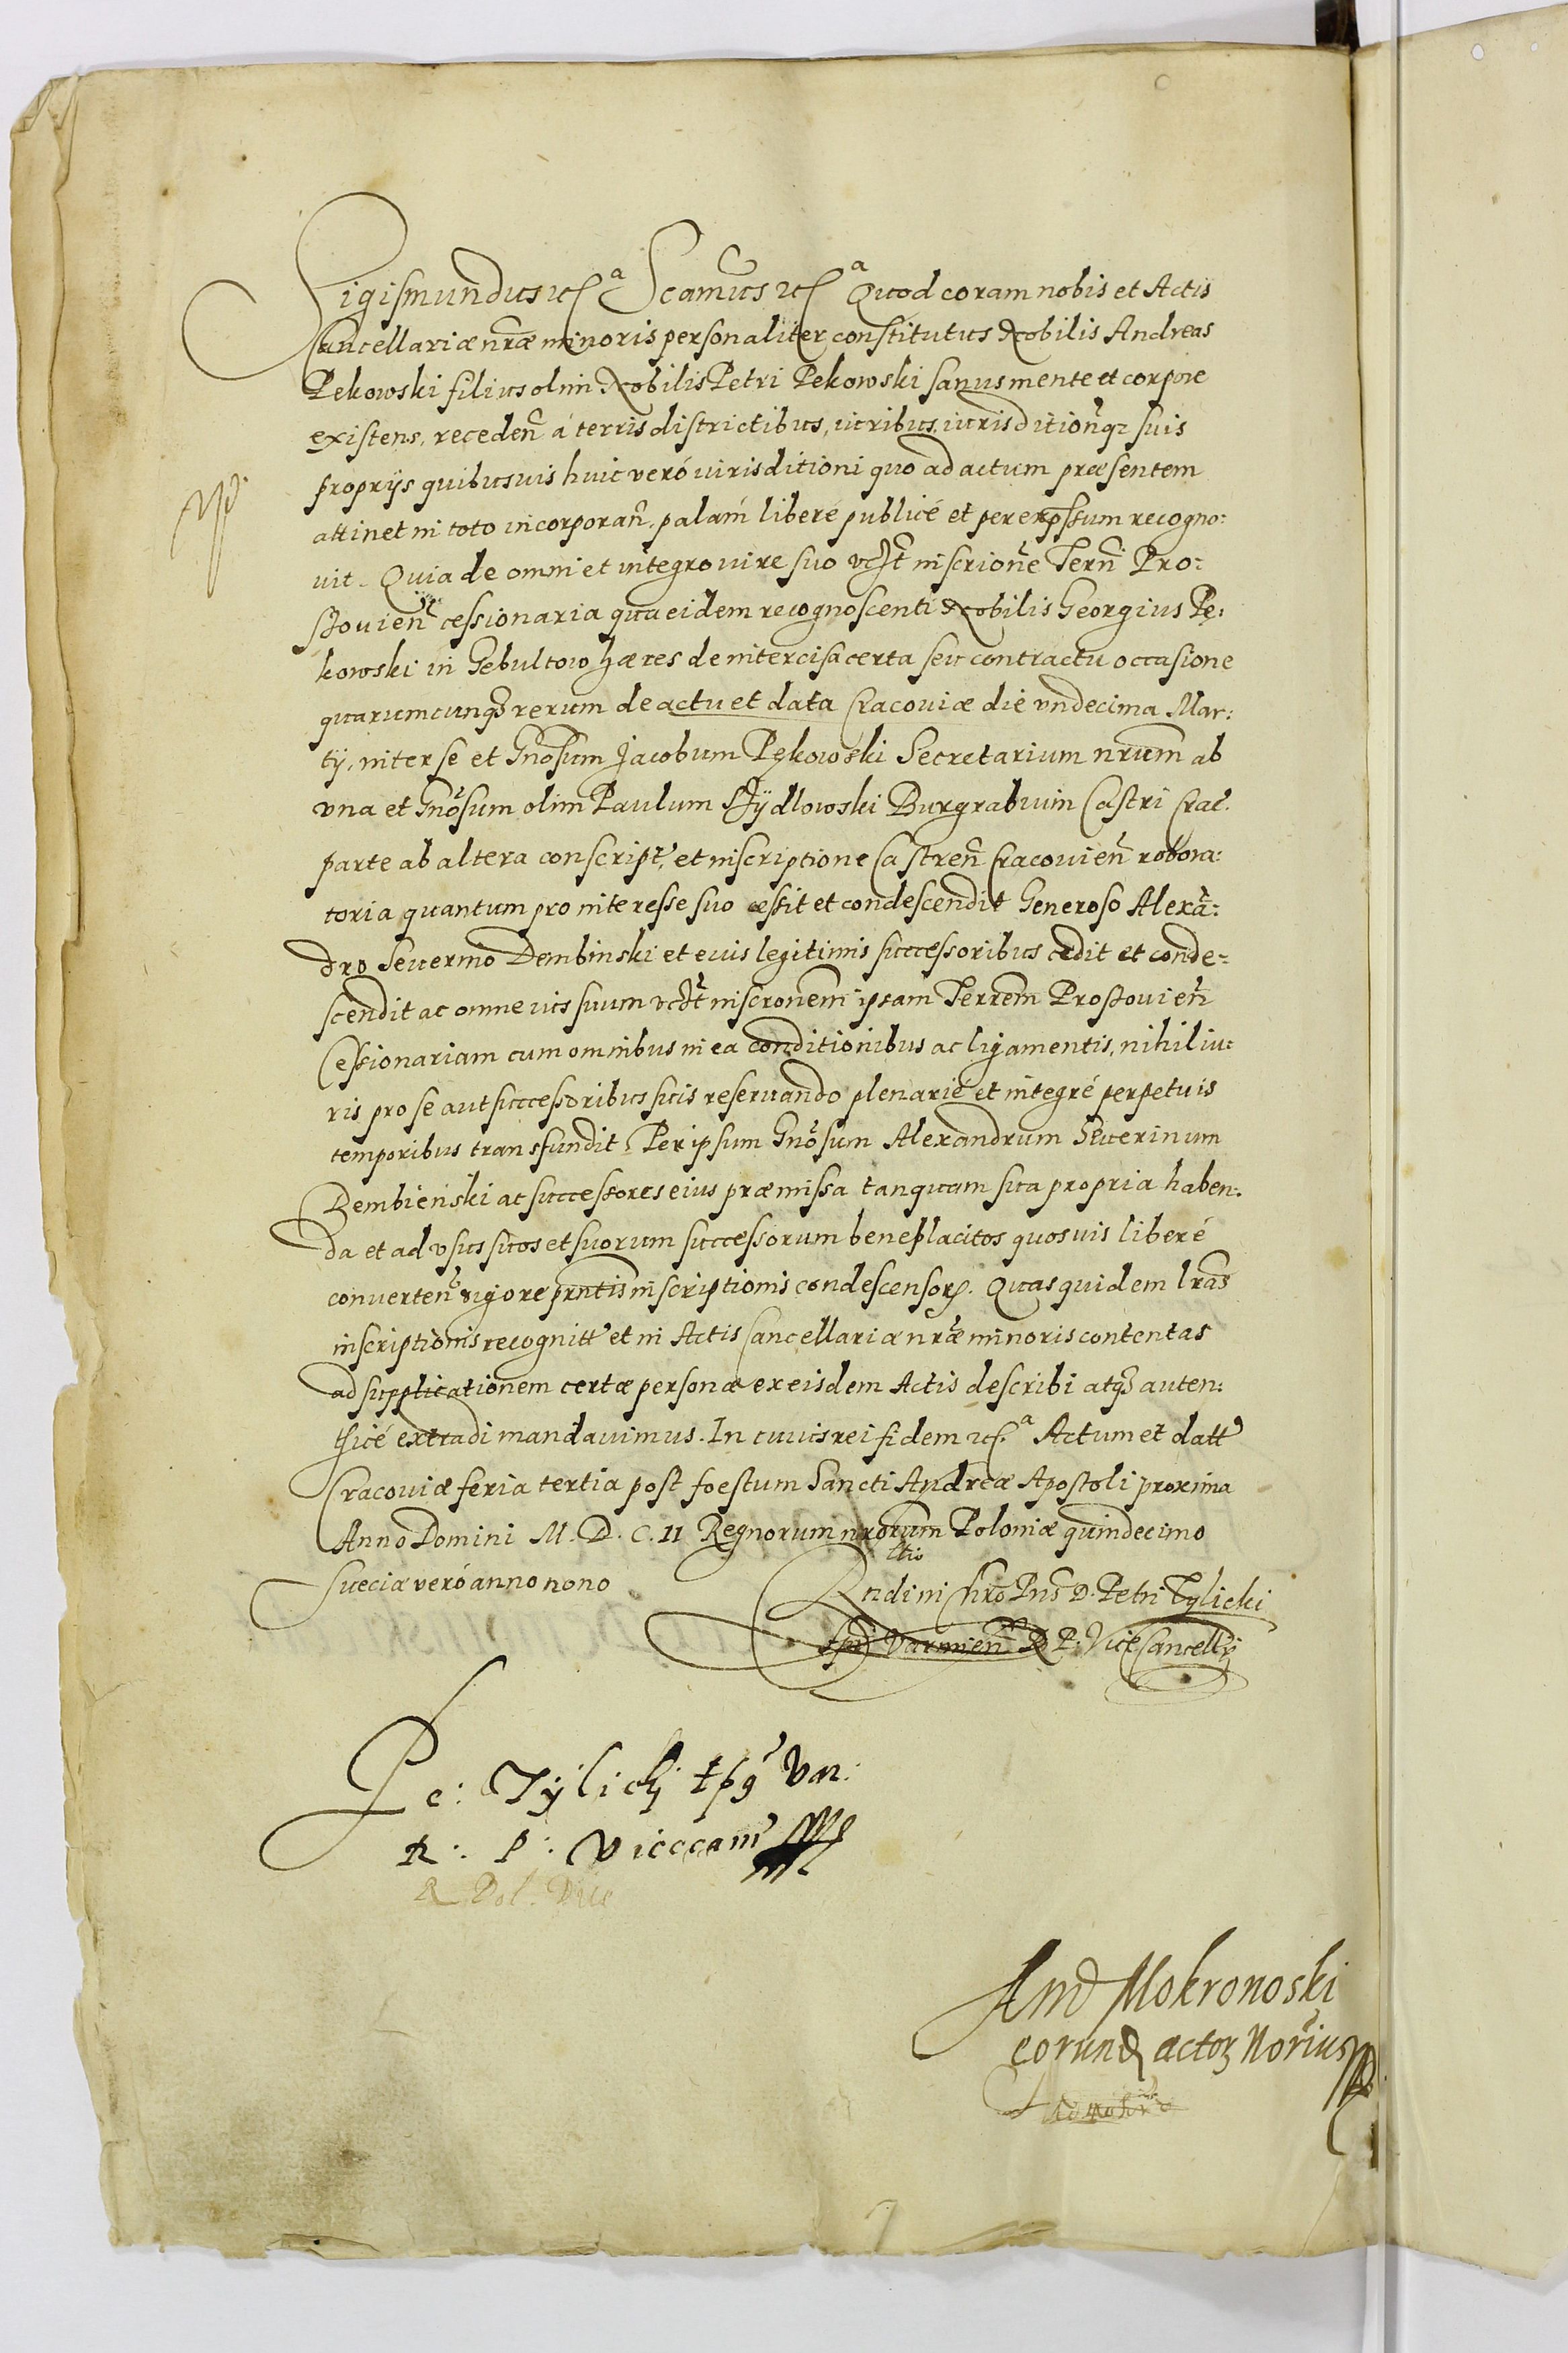 Sigismundus etc̃ᵃ Scamus etc̃ᵃ Quod coram nobis et Actis
Cancellariæ nr̃æ minoris personaliter constitutus Nobilis Andreas
Pekowski filius olim Nobilis Petri Pekowski sanus mente et corpore
existens, receden̄ á terris districtibus, iuribus, iurisditionq̄ȝ suis
proprijs quibusuis huic veró iurisditioni quo ad actum præsentem
attinet in toto incorporan̄, palam liberé publicé et per expssum recogno:
uit. Quia de omni et integro iure suo inscrione Terrñ Pro:
szouien̄ cessionaria qua eidem recognoscenti Nobilis Georgius Pę:
kowski in Gebultow hæres de intercisa certa seu contractu occasione
quarumcunqȝ rerum de actu et data Cracouiæ die vndecima Mar:
tij, inter se et Gnõsum Jacobum Pękowski Secretarium nr̃um ab
vna et Gnõsum olim Paulum Szÿdlowski Burgrabium Castri Crac̃.
parte ab altera conscript̃, et inscriptione Castren̄ Cracouien̄ robora:
toria quantum pro interesse suo cessit et condescendit Generoso Alexã:
dro Seuerino Dembinski et euis legitimis successoribus cedit et conde=
scendit ac omne ius suum inscronem ipsam Terrem̄ Proszouien̄
Cessionariam cum omnibus in ea conditionibus ac ligamentis, nihil iu:
ris pro se aut successoribus suis reseruando plenarié et integré perpetuis
temporibus transfundit. Per ipsum Gnõsum Alexandrum Seuerinum
Dembienski ac successores eius præmissa tanquam sua propria haben:
da et ad vsus suos et suorum successorum beneplacitos quosuis liberé
conuerten̄ vigore prñtis inscriptionis condescensorȩ. Quas quidem lr̃as
inscriptionis recognitt̃ et in Actis Cancellariæ nr̃æ minoris contentas
ad supplicationem certæ personæ ex eisdem Actis describi atqȝ auten:
ticé extradi mandauimus. In cuius rei fidem etc̃ᵃ Actum et datt̃
Cracouiæ feria tertia post foestum Sancti Andreæ Apostoli proxima
Anno Domini M. D. C. II Regnorum nr̃orum Poloniæ quindecimo
Sueciæ veró anno nono
Rndi in Chro Pris D. Petri Tylicki
Epi Varmien̄ R P. Vice Cancellȷ
Pe: Tÿlickj Epȝ Var:
R: P: Viccecan̄
R Pol. Vice
And Mokronoski
eorund actorȝ Norius